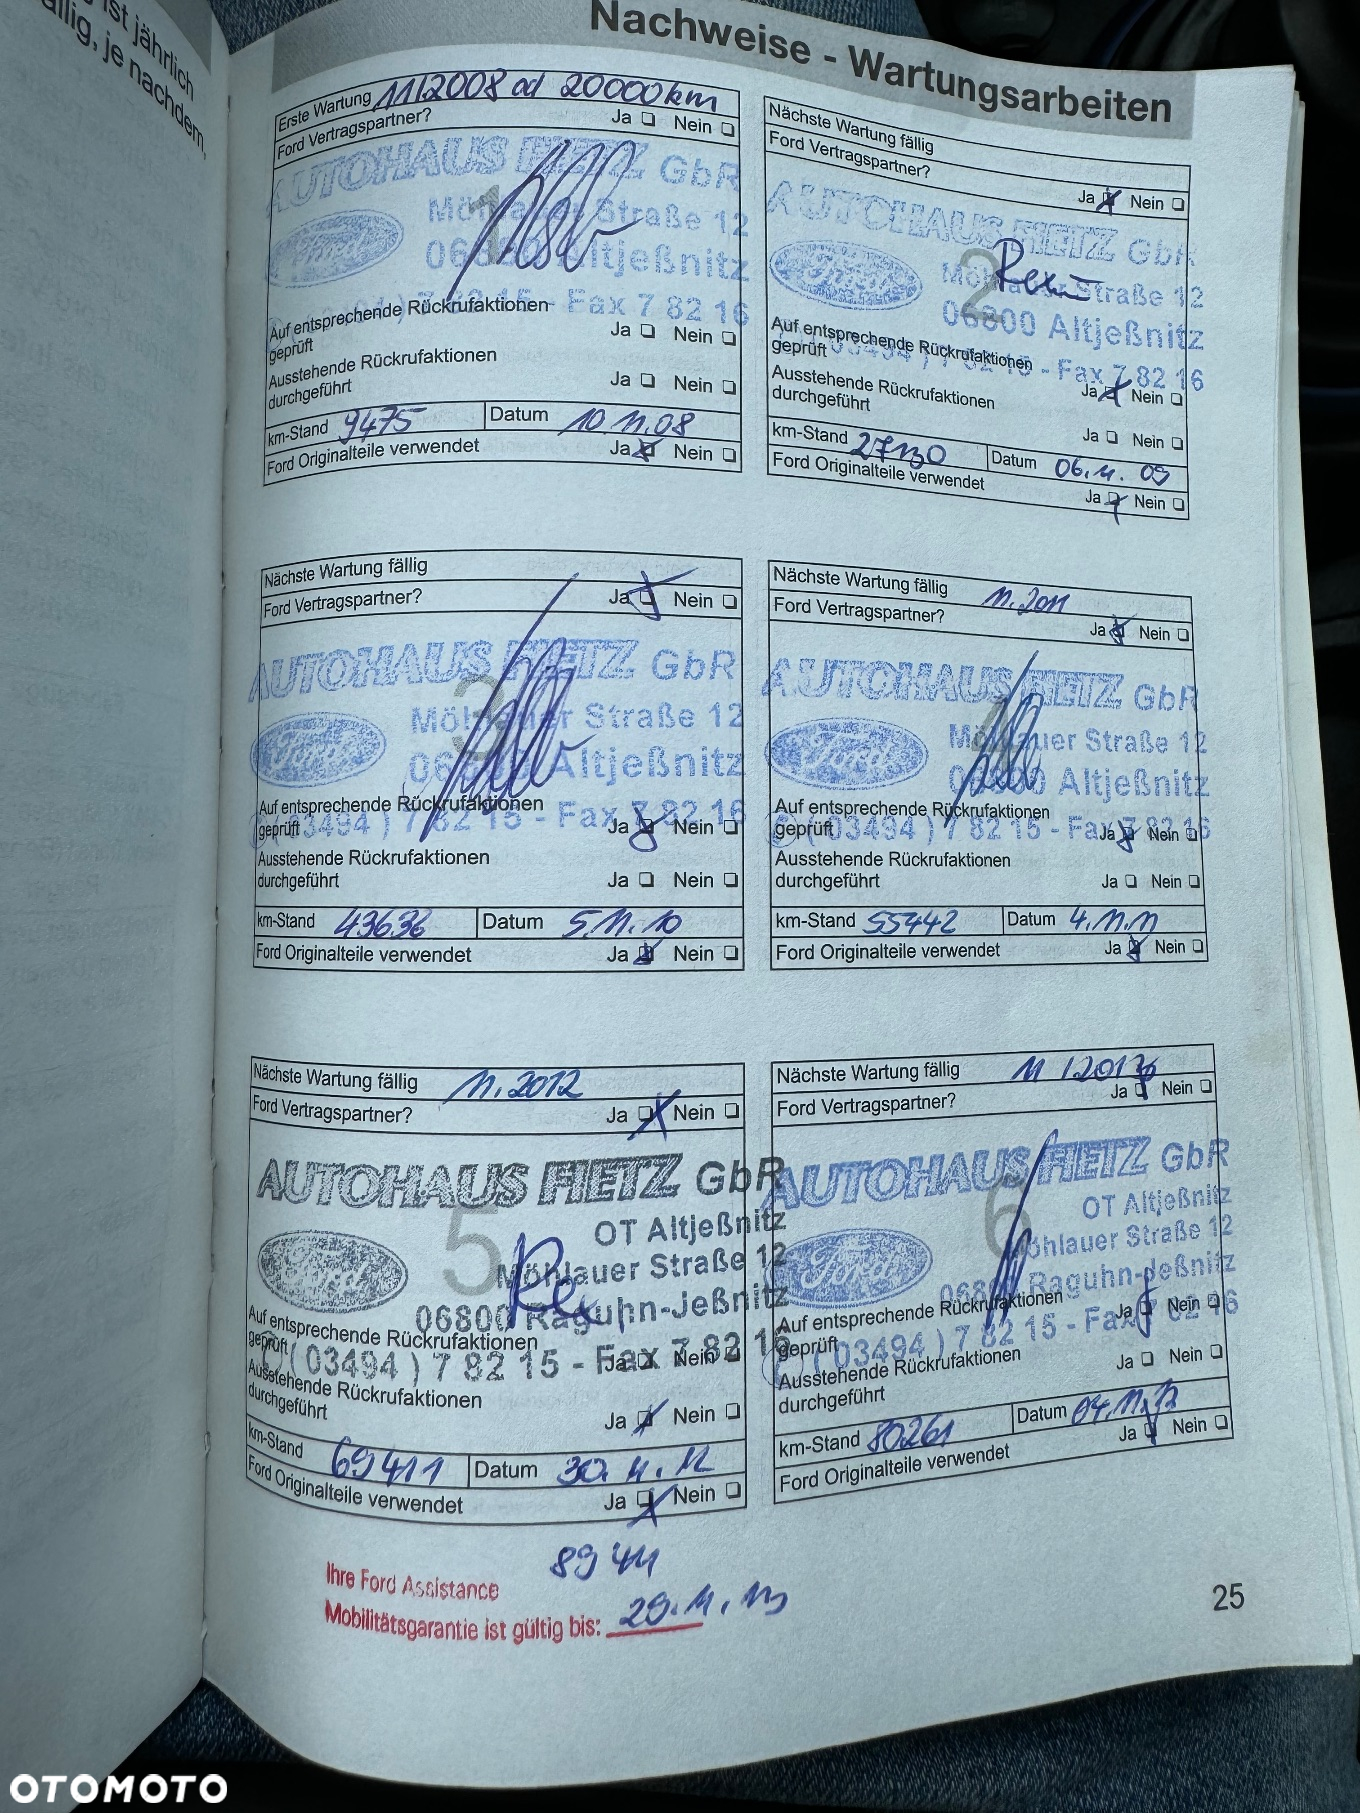 ist jährlich
fällig, je nachdem,
Nachweise - Wartungsarbeiten
Erste Wartung 11/2008 od 20000 km
Ford Vertragspartner? Ja Nein
AUTOHAUS FIETZ GbR
1
Möhlauer Straße 12
Ford
06800 Altjeßnitz
7 82 15 - Fax 7 82 16
Auf entsprechende Rückrufaktionen
geprüft Ja Nein
Ausstehende Rückrufaktionen
durchgeführt Ja Nein
km-Stand 9475 Datum 10.11.08
Ford Originalteile verwendet Ja Nein
Nächste Wartung fällig
Ford Vertragspartner?
Ja Nein
AUTOHAUS FIETZ GbR
2
Ford
Möhlauer Straße 12
06800 Altjeßnitz
(03494) 7 82 15 - Fax 7 82 16
Auf entsprechende Rückrufaktionen
geprüft Ja Nein
Ausstehende Rückrufaktionen
durchgeführt Ja Nein
km-Stand 27130 Datum 06.11.09
Ford Originalteile verwendet Ja Nein
Nächste Wartung fällig
Ford Vertragspartner? Ja Nein
AUTOHAUS FIETZ GbR
3
Möhlauer Straße 12
Ford
06800 Altjeßnitz
(03494) 7 82 15 - Fax 7 82 16
Auf entsprechende Rückrufaktionen
geprüft Ja Nein
Ausstehende Rückrufaktionen
durchgeführt Ja Nein
km-Stand 43636 Datum 5.11.10
Ford Originalteile verwendet Ja Nein
Nächste Wartung fällig 11.2011
Ford Vertragspartner? Ja Nein
AUTOHAUS FIETZ GbR
4
Möhlauer Straße 12
Ford
06800 Altjeßnitz
(03494) 7 82 15 - Fax 7 82 16
Auf entsprechende Rückrufaktionen
geprüft Ja Nein
Ausstehende Rückrufaktionen
durchgeführt Ja Nein
km-Stand 55442 Datum 4.11.11
Ford Originalteile verwendet Ja Nein
Nächste Wartung fällig 11.2012
Ford Vertragspartner? Ja Nein
AUTOHAUS FIETZ GbR
5
OT Altjeßnitz
Ford
Möhlauer Straße 12
06800 Raguhn-Jeßnitz
(03494) 7 82 15 - Fax 7 82 16
Auf entsprechende Rückrufaktionen
geprüft Ja Nein
Ausstehende Rückrufaktionen
durchgeführt Ja Nein
km-Stand 69411 Datum 30.11.12
Ford Originalteile verwendet Ja Nein
Nächste Wartung fällig
Ford Vertragspartner? Ja Nein
AUTOHAUS FIETZ GbR
6
OT Altjeßnitz
Ford
Möhlauer Straße 12
06800 Raguhn-Jeßnitz
(03494) 7 82 15 - Fax 7 82 16
Auf entsprechende Rückrufaktionen
geprüft Ja Nein
Ausstehende Rückrufaktionen
durchgeführt Ja Nein
km-Stand 80261 Datum
Ford Originalteile verwendet Ja Nein
Ihre Ford Assistance
Mobilitätsgarantie ist gültig bis: 29.11.13
25
OTOMOTO